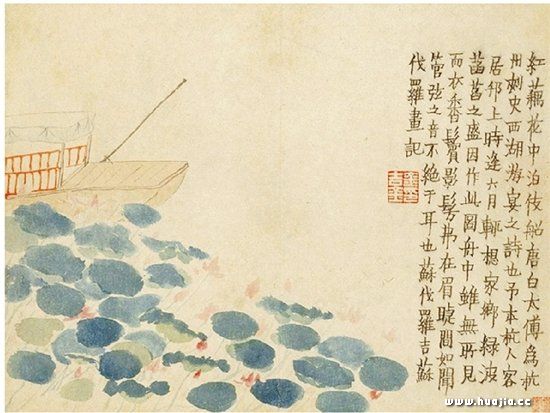 紅藕花中泊伎船唐白太傅為杭
州刺史西湖游宴之詩也予本杭人客
居邗上時逢六月輒想家鄉綠波
菡萏之盛因作此圖舟中雖無所見
而衣香鬢影髣髴在眉睫間如聞
管弦之音不絕于耳也蘇伐羅吉蘇
伐羅畫記
www.huajia.cc